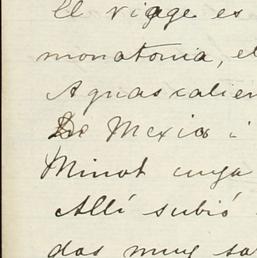 El viage es
monotonia, el
Aguascalien
De Mexico i
Minot cuya
Allí subió
dos muy sa